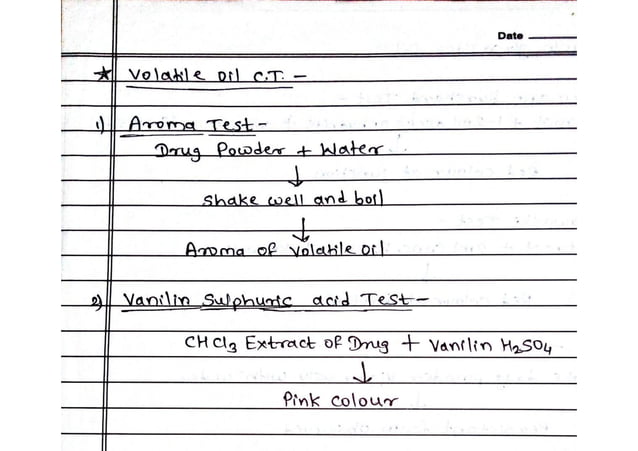 Date
* Volatile oil C.T. -
1) Aroma Test -
Drug Powder + Water
↓
Shake well and boil
↓
Aroma of Volatile oil
2) Vanilin Sulphuric acid Test -
CHCl3 Extract of Drug + Vanilin H2SO4
↓
Pink colour